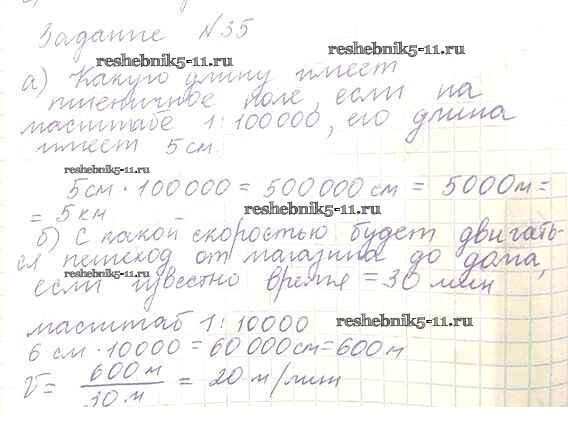 Задание №35
reshebnik5-11.ru
reshebnik5-11.ru
а) Какую длину имеет
пшеничное поле, если на
масштабе 1:100000, его длина
имеет 5 см.
reshebnik5-11.ru
5см · 100000 = 500000 см = 5000м =
= 5 км
reshebnik5-11.ru
б) С какой скоростью будет двигать-
ся пешеход от магазина до дома,
reshebnik5-11.ru
если известно время = 30 мин
масштаб 1:10000
reshebnik5-11.ru
6 см · 10000 = 60000см = 600м
V = 600 м / 30 м = 20 м/мин